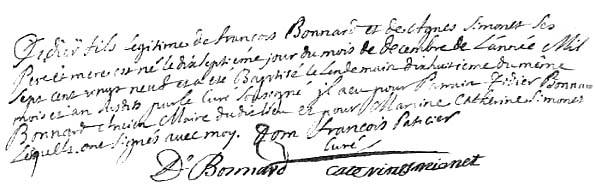 Didier fils légitimes de françois Bonnard et de Agnes Simonet Ses
Pere et mere est né le dixseptième jour du mois de decembre de L'année Mil
Sept cent vingt neuf et a été Baptisé le Lendemain dixhuitieme du même
mois et an susdits par le Curé soussigné il a eu pour Parrain Didier Bonnard
Bonnard Maire dudit lieu et pour Marraine Catherine Simonet
Lesquels ont signés avec moy. Dom François Paticier
Curé
Dr Bonnard Caterine simonet